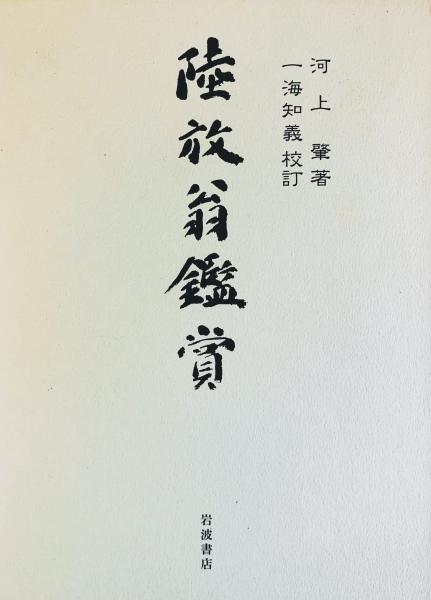 河上 肇 著
一海知義 校訂
陸放翁鑑賞
岩波書店